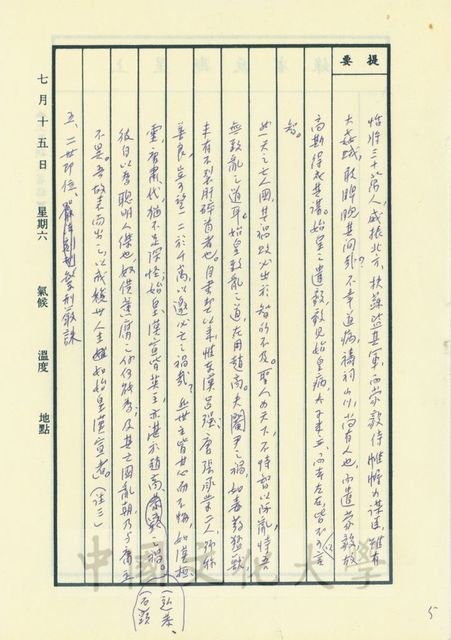 提要
恬將三十萬人，威振北方，扶蘇監其軍，而蒙毅侍帷幄為謀臣，雖有
大姦賊，敢睥睨其間哉？不幸道病，禱祠山川，尚有人也，而遣蒙毅，故
高斯得成其謀。始皇之遣毅，毅見始皇病，太子未立，而去左右，皆不可以言
智。
然天之亡人國，其禍敗必出於智所不及。聖人為天下，不恃智以防亂，恃吾
無致亂之道耳。始皇致亂之道，在用趙高，夫閹尹之禍，如毒藥猛獸，
未有不裂肝碎首者也。自書契以來，惟東漢呂強，唐張承業二人，號稱
善良，豈可望一二於千萬，以邀必亡之禍哉？然世主皆甘心而不悔，如漢桓
靈，唐肅代，猶不足深怪，始皇漢宣皆英主，亦湛於趙高恭顯之禍。
（弘恭、石顯）
彼自以為聰明人傑也，奴僕薰腐之餘何能為，及其亡國亂朝，乃與庸主
不異。吾故表而出之，以戒後世人主如始皇漢宣者。（註三）
五、二世即位，繁刑嚴誅
七月十五日 星期六 氣候 溫度 地點
中國文化大學
5